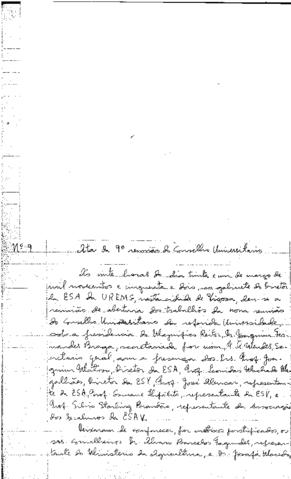 Nº 9 Ata da 9ª reunião do Conselho Universitário
Às vinte horas do dia trinta e um de março de
mil novecentos e cinquenta e dois, no gabinete do Diretor
da ESA da UREMG, nesta cidade de Viçosa, deu-se a
reunião de abertura dos trabalhos da nona reunião
do Conselho Universitário da referida Universidade,
sob a presidencia do Magnífico Reitor, Dr. Joaquim Fer-
nandes Braga, secretariada por mim, Se-
cretario Geral, com a presença dos Srs. Prof. Joa-
quim Diretor da ESA, Prof. Machado Ma-
galhães, Diretor da ESV, Prof. José Alencar, representan-
te da ESA, Prof. representante da ESV, e
Prof. Silvio Starling Brandão, representante da Associação
dos Ex-alunos da ESAV.
Deixaram de comparecer, por motivos justificados, os
srs. conselheiros Dr. Alvaro Barcelos Fagundes, represen-
tante do Ministerio da Agricultura, e Dr. Josafá Macedo